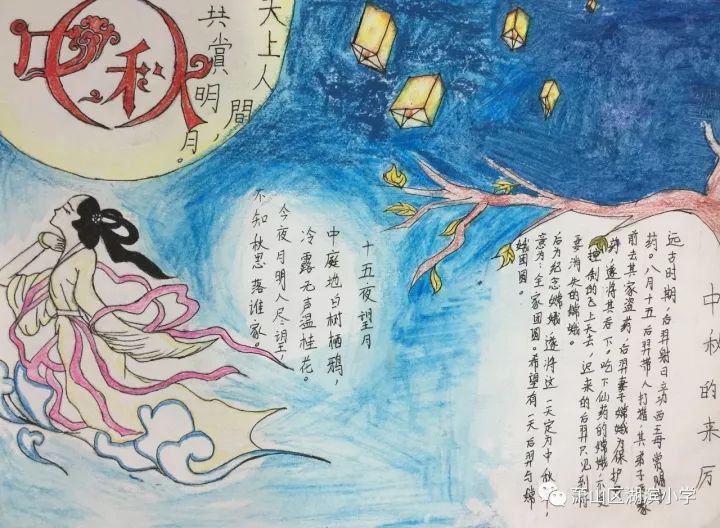 中秋
天上人間，
共賞明月。
中秋的来厉
远古时期，后羿射日立功西王母赏赐
药。八月十五后羿带人打猎，其弟子
前去其家盗药，后羿妻子嫦娥为保护
遂将其吞下。吃下仙药的嫦娥，不受
控制的飞上天去，迟来的后羿只见到将
要消失的嫦娥。
后为纪念嫦娥，遂将这一天定为中秋节，
意为：全家团圆。希望有一天后羿与嫦
娥团圆。
十五夜望月
中庭地白树栖鸦，
冷露无声温桂花。
今夜月明人尽望，
不知秋思落谁家。
萧山区湖滨小学